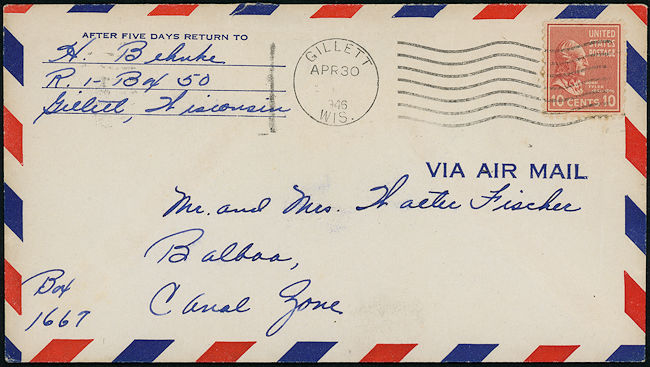 AFTER FIVE DAYS RETURN TO
H. Behnke
R. 1 - Box 50
Gillett, Wisconsin
GILLETT
APR 30
1946
WIS.
UNITED
STATES
POSTAGE
JOHN
TYLER
10 CENTS 10
VIA AIR MAIL
Mr. and Mrs. Walter Fischer
Balboa,
Canal Zone
Box
1667